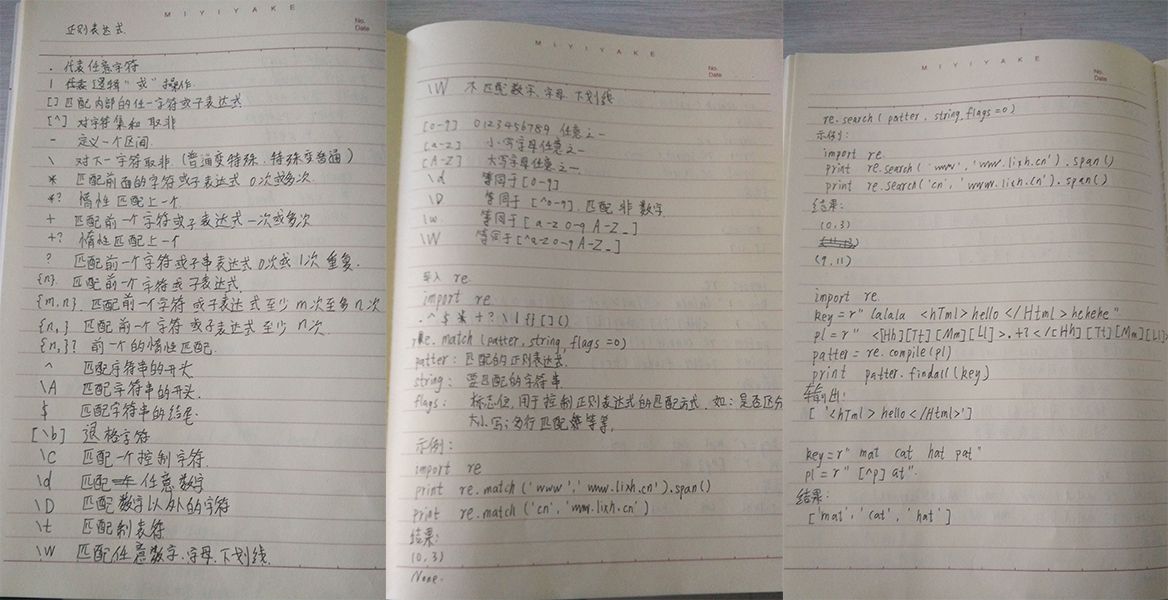 MIYIYAKE
No.
Date
正则表达式.
. 代表任意字符
| 代表逻辑"或"操作
[ ] 匹配内部的任一字符或子表达式
[^] 对字符集和取非
- 定义一个区间
\ 对下一字符取非 (普通变特殊, 特殊变普通)
* 匹配前面的字符或子表达式 0次或多次
*? 惰性匹配上一个
+ 匹配前一个字符或子表达式一次或多次
+? 惰性匹配上一个
? 匹配前一个字符或子串表达式 0次或1次 重复.
{n} 匹配前一个字符或子表达式.
{m,n} 匹配前一个字符或子表达式至少m次至多n次
{n,} 匹配前一个字符或子表达式至少n次
{n,}? 前一个的惰性匹配.
^ 匹配字符串的开头
\A 匹配字符串的开头.
$ 匹配字符串的结尾
[\b] 退格字符
\C 匹配一个控制字符.
\d 匹配任意数字
\D 匹配数字以外的字符
\t 匹配制表符
\W 匹配任意数字.字母.下划线.
MIYIYAKE
No.
Date
\W 不匹配数字、字母.下划线
[0-9] 0123456789 任意之一
[a-z] 小写字母任意之一
[A-Z] 大写字母任意之一
\d 等同于[0-9]
\D 等同于[^0-9].匹配非数字
\w 等同于[a-z 0-9 A-Z_]
\W 等同于[^a-z 0-9 A-Z_]
导入 re
import re
. ^ $ * + ? \ | {} [] ()
re.match (patter, string, flags =0)
patter: 匹配的正则表达式.
string: 要匹配的字符串.
flags: 标志位,用于控制正则表达式的匹配方式. 如:是否区分
大小写;多行匹配等等,
示例:
import re
print re.match ('www','www.lixh.cn').span()
print re.match ('cn', 'www.lixh.cn')
结果:
(0, 3)
None.
MIYIYAKE
No.
Date
re.search (patter, string, flags =0)
示例:
import re.
print re.search ('www', 'www.lixh.cn').span()
print re.search ('cn', 'www.lixh.cn').span()
结果:
(0, 3)
(9, 11)
import re
key=r" lalala <hTml> hello </Html> hehehe"
pl = r" <[Hh][Tt][Mm][Ll]>.+?</[Hh][Tt][Mm][Ll]>
patter = re.compile(pl)
print patter.findall (key)
输出:
['<hTml> hello </Html>']
key=r" mat cat hat pat"
pl = r" [^p] at".
结果:
['mat', 'cat', 'hat']